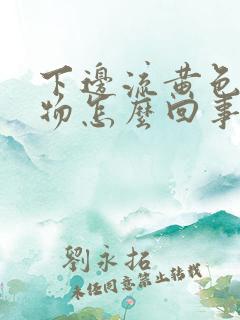 下邊流黃色
物怎麼回事
劉永拓
未经同意禁止转载